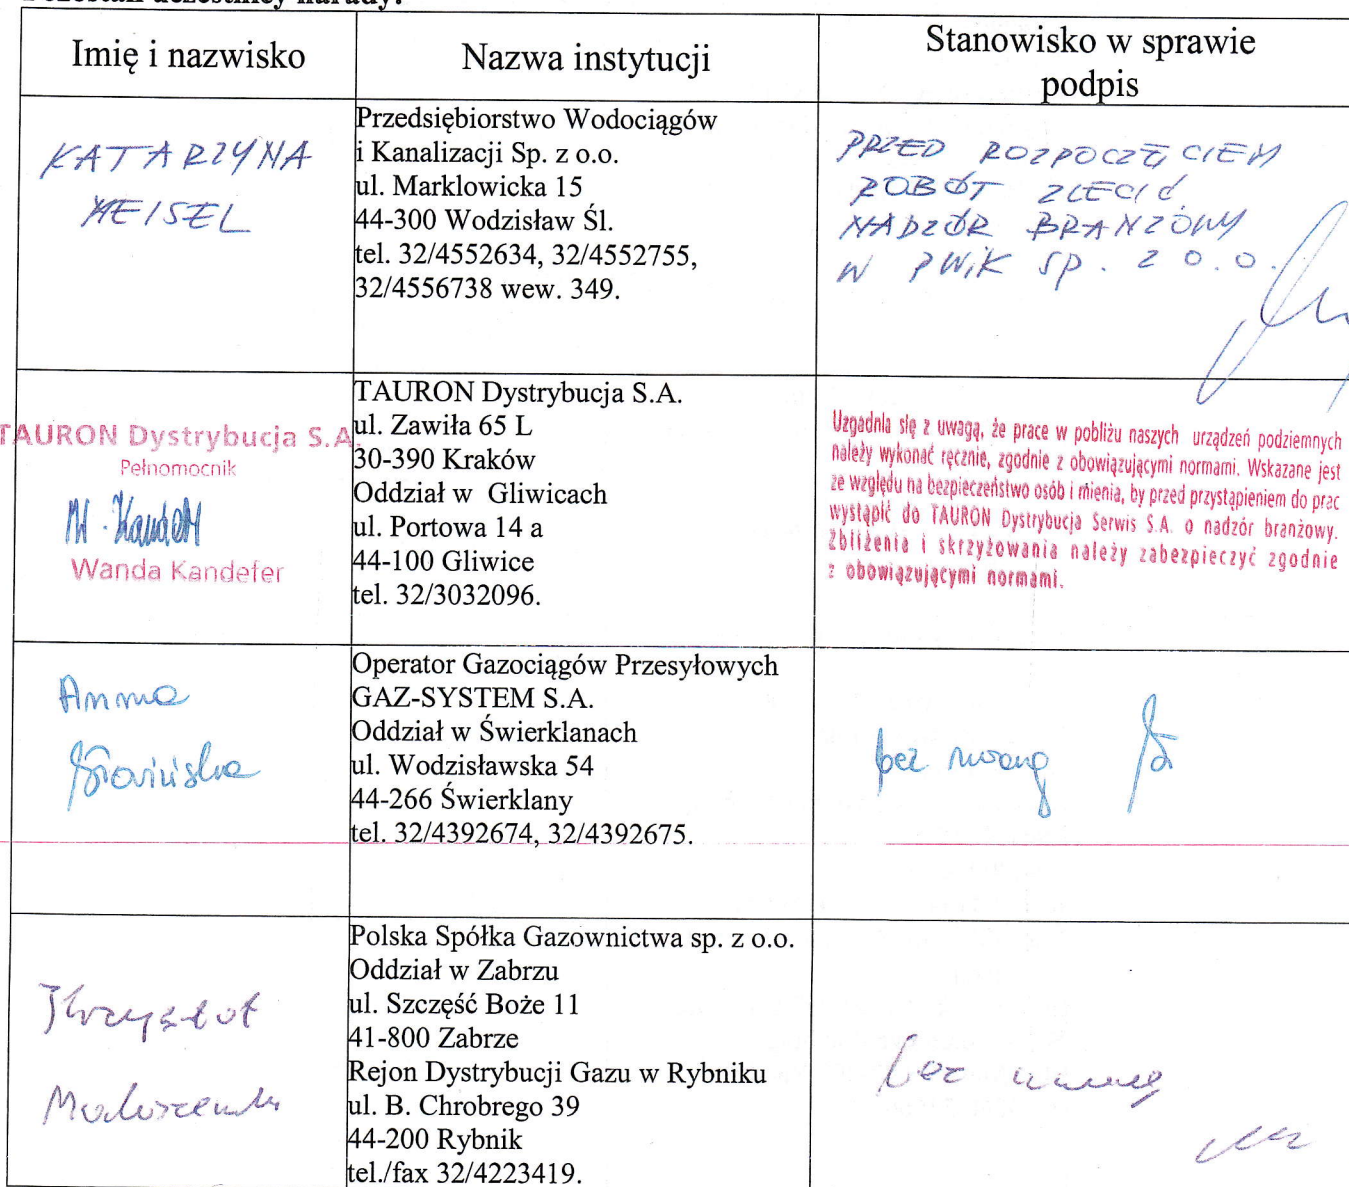 Pozostali uczestnicy narady:
Imię i nazwisko
Nazwa instytucji
Stanowisko w sprawie
podpis
KATARZYNA
MEISEL
Przedsiębiorstwo Wodociągów
i Kanalizacji Sp. z o.o.
ul. Marklowicka 15
44-300 Wodzisław Śl.
tel. 32/4552634, 32/4552755,
32/4556738 wew. 349.
PRZED ROZPOCZĘCIEM
ROBÓT ZLECIĆ
NADZÓR BRANŻOWY
W PWiK SP. Z O.O.
TAURON Dystrybucja S.A.
Pełnomocnik
W. Kandefer
Wanda Kandefer
TAURON Dystrybucja S.A.
ul. Zawiła 65 L
30-390 Kraków
Oddział w Gliwicach
ul. Portowa 14 a
44-100 Gliwice
tel. 32/3032096.
Uzgadnia się z uwagą, że prace w pobliżu naszych urządzeń podziemnych
należy wykonać ręcznie, zgodnie z obowiązującymi normami. Wskazane jest
ze względu na bezpieczeństwo osób i mienia, by przed przystąpieniem do prac
wystąpić do TAURON Dystrybucja Serwis S.A. o nadzór branżowy.
Zbliżenia i skrzyżowania należy zabezpieczyć zgodnie
z obowiązującymi normami.
Anna
Operator Gazociągów Przesyłowych
GAZ-SYSTEM S.A.
Oddział w Świerklanach
ul. Wodzisławska 54
44-266 Świerklany
tel. 32/4392674, 32/4392675.
bez uwag
Krzysztof
Polska Spółka Gazownictwa sp. z o.o.
Oddział w Zabrzu
ul. Szczęść Boże 11
41-800 Zabrze
Rejon Dystrybucji Gazu w Rybniku
ul. B. Chrobrego 39
44-200 Rybnik
tel./fax 32/4223419.
bez uwag